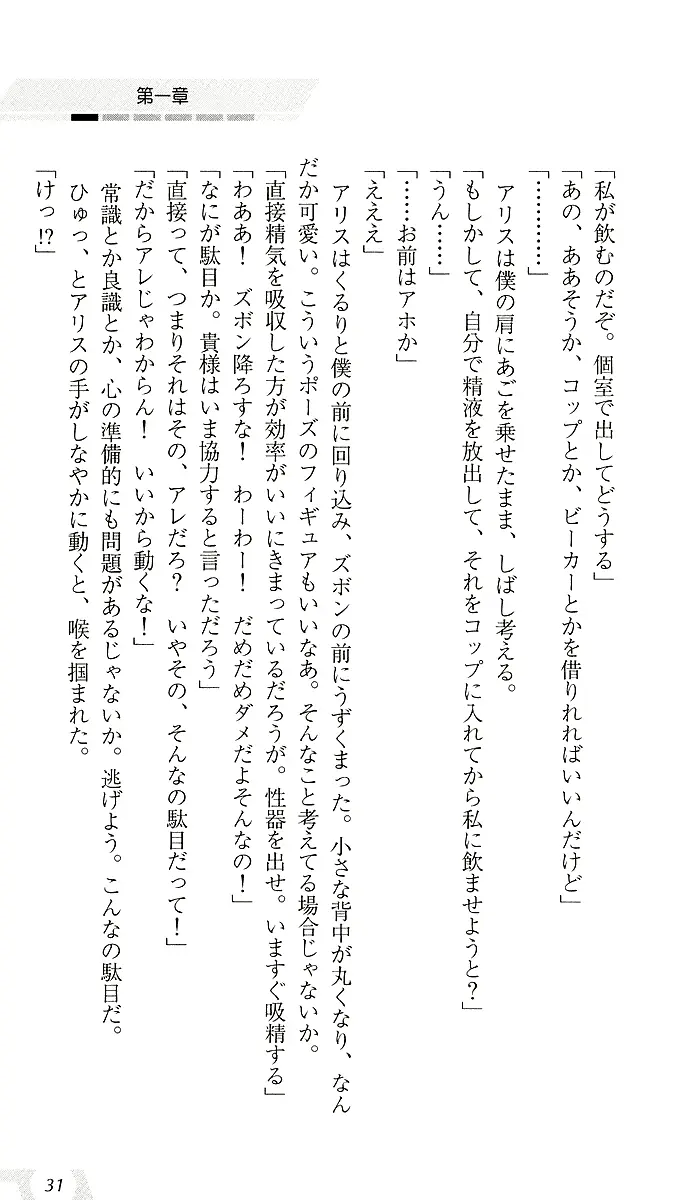 第一章
「私が飲むのだぞ。個室で出してどうする」
「あの、ああそうか、コップとか、ビーカーとかを借りれればいいんだけど」
「…………」
　アリスは僕の肩にあごを乗せたまま、しばし考える。
「もしかして、自分で精液を放出して、それをコップに入れてから私に飲ませようと？」
「うん……」
「……お前はアホか」
「えええ」
　アリスはくるりと僕の前に回り込み、ズボンの前にうずくまった。小さな背中が丸くなり、なん
だか可愛い。こういうポーズのフィギュアもいいなあ。そんなこと考えてる場合じゃないか。
「直接精気を吸収した方が効率がいいにきまっているだろうが。性器を出せ。いますぐ吸精する」
「わああ！　ズボン降ろすな！　わーわー！　だめだめダメだよそんなの！」
「なにが駄目か。貴様はいま協力すると言っただろう」
「直接って、つまりそれはその、アレだろ？　いやその、そんなの駄目だって！」
「だからアレじゃわからん！　いいから動くな！」
　常識とか良識とか、心の準備的にも問題があるじゃないか。逃げよう。こんなの駄目だ。
　ひゅっ、とアリスの手がしなやかに動くと、喉を掴まれた。
「けっ!?」
31